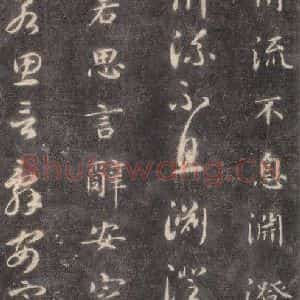 川流不息淵澄
川流不息淵澄
若思言辭安定
若思言辭安定
Shufawang.Cn